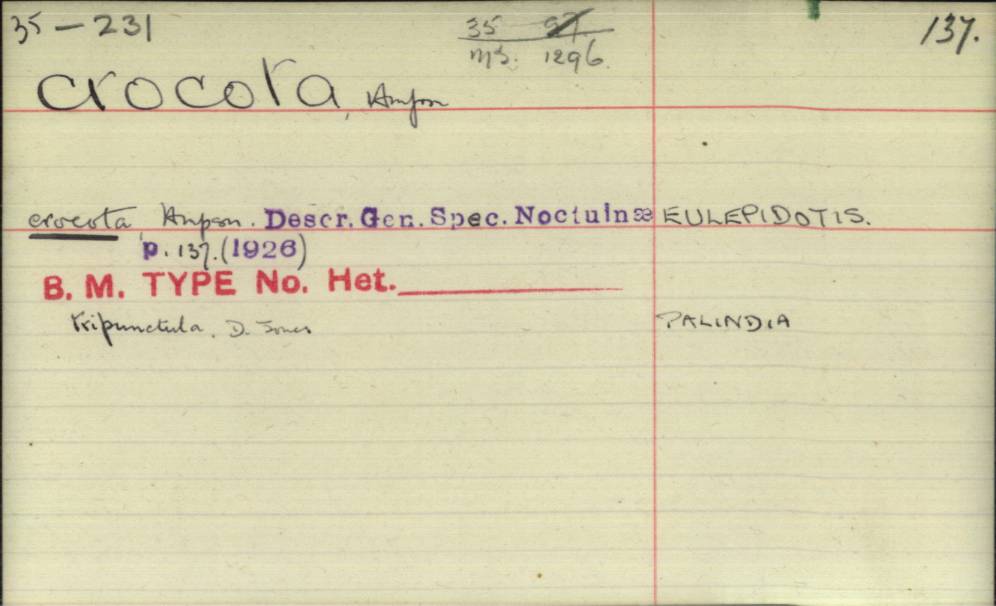 35 - 231 35 97 137.
MS. 1296.
crocota, Hmpsn
crocota, Hmpsn. Descr. Gen. Spec. Noctuinæ EULEPIDOTIS.
p. 137. (1926)
B. M. TYPE No. Het.
tripunctula. D. Jones PALINDIA